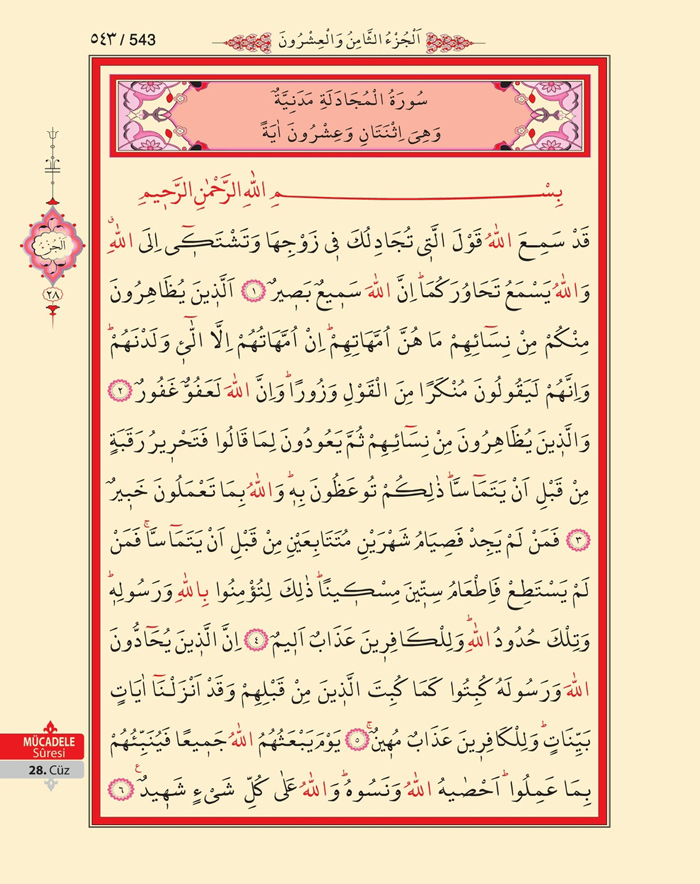 ٥٤٣ / 543
اَلْجُزْءُ الثَّامِنُ وَالْعِشْرُونَ
سُورَةُ الْمُجَادَلَةِ مَدَنِيَّةٌ
وَهِىَ اِثْنَتَانِ وَعِشْرُونَ اٰيَةً
بِسْمِ اللّٰهِ الرَّحْمٰنِ الرَّحِيمِ
قَدْ سَمِعَ اللّٰهُ قَوْلَ الَّتٖى تُجَادِلُكَ فٖى زَوْجِهَا وَتَشْتَكٖٓى اِلَى اللّٰهِۗ
وَاللّٰهُ يَسْمَعُ تَحَاوُرَكُمَاۜ اِنَّ اللّٰهَ سَمٖيعٌ بَصٖيرٌ ﴿١﴾ اَلَّذٖينَ يُظَاهِرُونَ
مِنْكُمْ مِنْ نِسَٓائِهِمْ مَا هُنَّ اُمَّهَاتِهِمْۜ اِنْ اُمَّهَاتُهُمْ اِلَّا الّٰٓـٖٔى وَلَدْنَهُمْۜ
وَاِنَّهُمْ لَيَقُولُونَ مُنْكَرًا مِنَ الْقَوْلِ وَزُورًاۜ وَاِنَّ اللّٰهَ لَعَفُوٌّ غَفُورٌ ﴿٢﴾
وَالَّذٖينَ يُظَاهِرُونَ مِنْ نِسَٓائِهِمْ ثُمَّ يَعُودُونَ لِمَا قَالُوا فَتَحْرٖيرُ رَقَبَةٍ
مِنْ قَبْلِ اَنْ يَتَمَٓاسَّاۜ ذٰلِكُمْ تُوعَظُونَ بِهٖۜ وَاللّٰهُ بِمَا تَعْمَلُونَ خَبٖيرٌ
﴿٣﴾ فَمَنْ لَمْ يَجِدْ فَصِيَامُ شَهْرَيْنِ مُتَتَابِعَيْنِ مِنْ قَبْلِ اَنْ يَتَمَٓاسَّاۚ فَمَنْ
لَمْ يَسْتَطِعْ فَاِطْعَامُ سِتّٖينَ مِسْكٖينًاۜ ذٰلِكَ لِتُؤْمِنُوا بِاللّٰهِ وَرَسُولِهٖۜ
وَتِلْكَ حُدُودُ اللّٰهِۜ وَلِلْكَافِرٖينَ عَذَابٌ اَلٖيمٌ ﴿٤﴾ اِنَّ الَّذٖينَ يُحَٓادُّونَ
اللّٰهَ وَرَسُولَهُ كُبِتُوا كَمَا كُبِتَ الَّذٖينَ مِنْ قَبْلِهِمْ وَقَدْ اَنْزَلْنَٓا اٰيَاتٍ
بَيِّنَاتٍۜ وَلِلْكَافِرٖينَ عَذَابٌ مُهٖينٌۚ ﴿٥﴾ يَوْمَ يَبْعَثُهُمُ اللّٰهُ جَمٖيعًا فَيُنَبِّئُهُمْ
بِمَا عَمِلُواۜ اَحْصٰيهُ اللّٰهُ وَنَسُوهُۜ وَاللّٰهُ عَلٰى كُلِّ شَىْءٍ شَهٖيدٌ ﴿٦﴾ ع
اَلْجُزْءُ
٢٨
MÜCADELE
Sûresi
28. Cüz